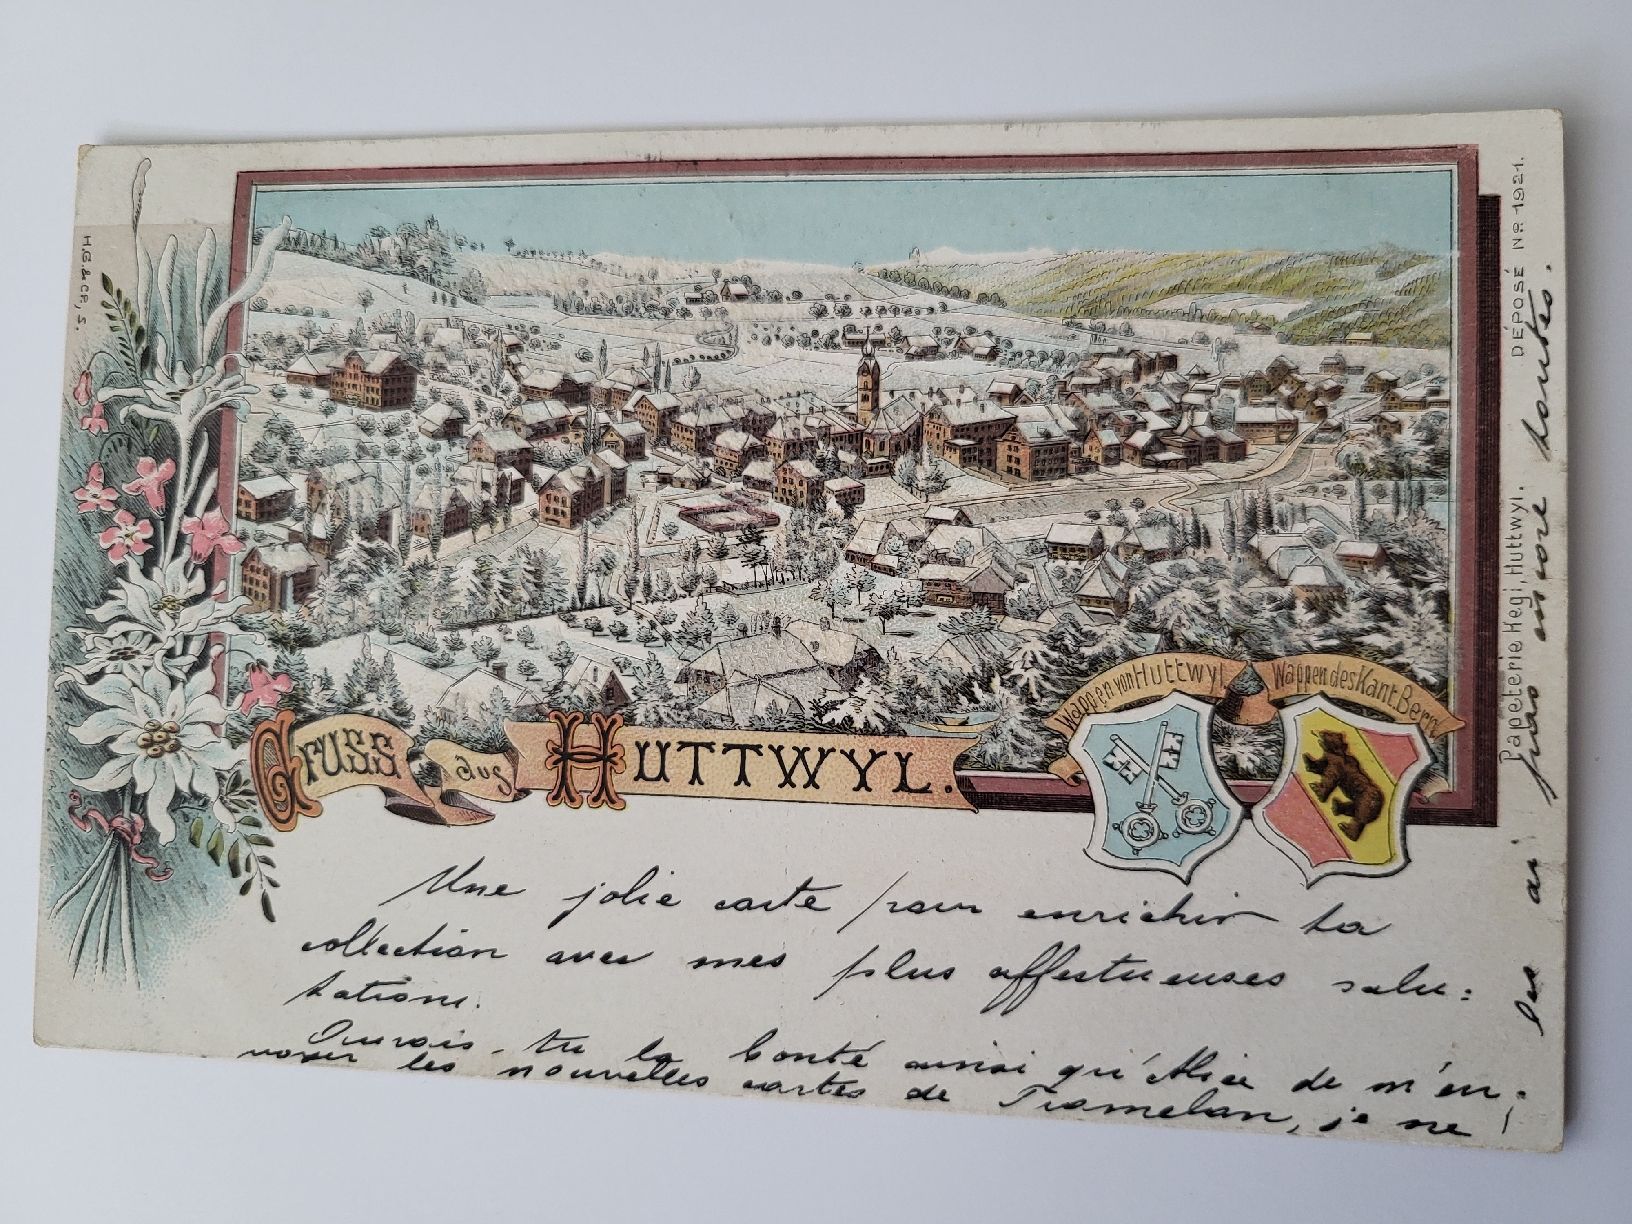 H.G. & CP, S.
DÉPOSÉ No. 1921.
Papeterie Hegi, Huttwyl.
Gruss aus HUTTWYL.
Wappen von Huttwyl
Wappen des Kant. Bern
Une jolie carte pour enrichir ta
collection avec mes plus affectueuses salu:
tations.
Aurais-tu la bonté ainsi qu'Alice de m'en:
voyer les nouvelles cartes de Tramelan, je ne
les ai pas encore toutes.